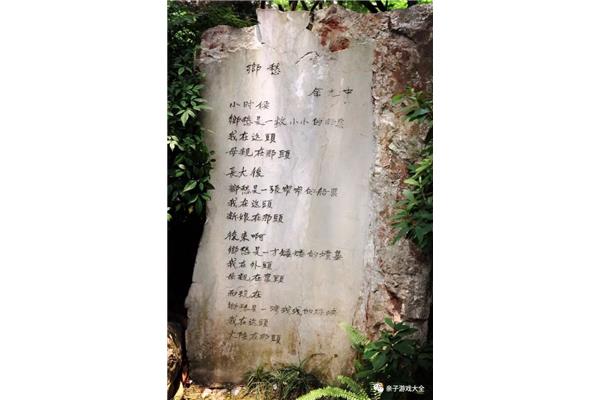 鄉愁
余光中
小时候
鄉愁是一枚小小的邮票
我在这頭
母親在那頭
長大後
鄉愁是一張窄窄的船票
我在这頭
新娘在那頭
後来啊
鄉愁是一方矮矮的墳墓
我在外頭
母親在裏頭
而現在
鄉愁是一湾浅浅的海峡
我在这頭
大陸在那頭
亲子游戏大全